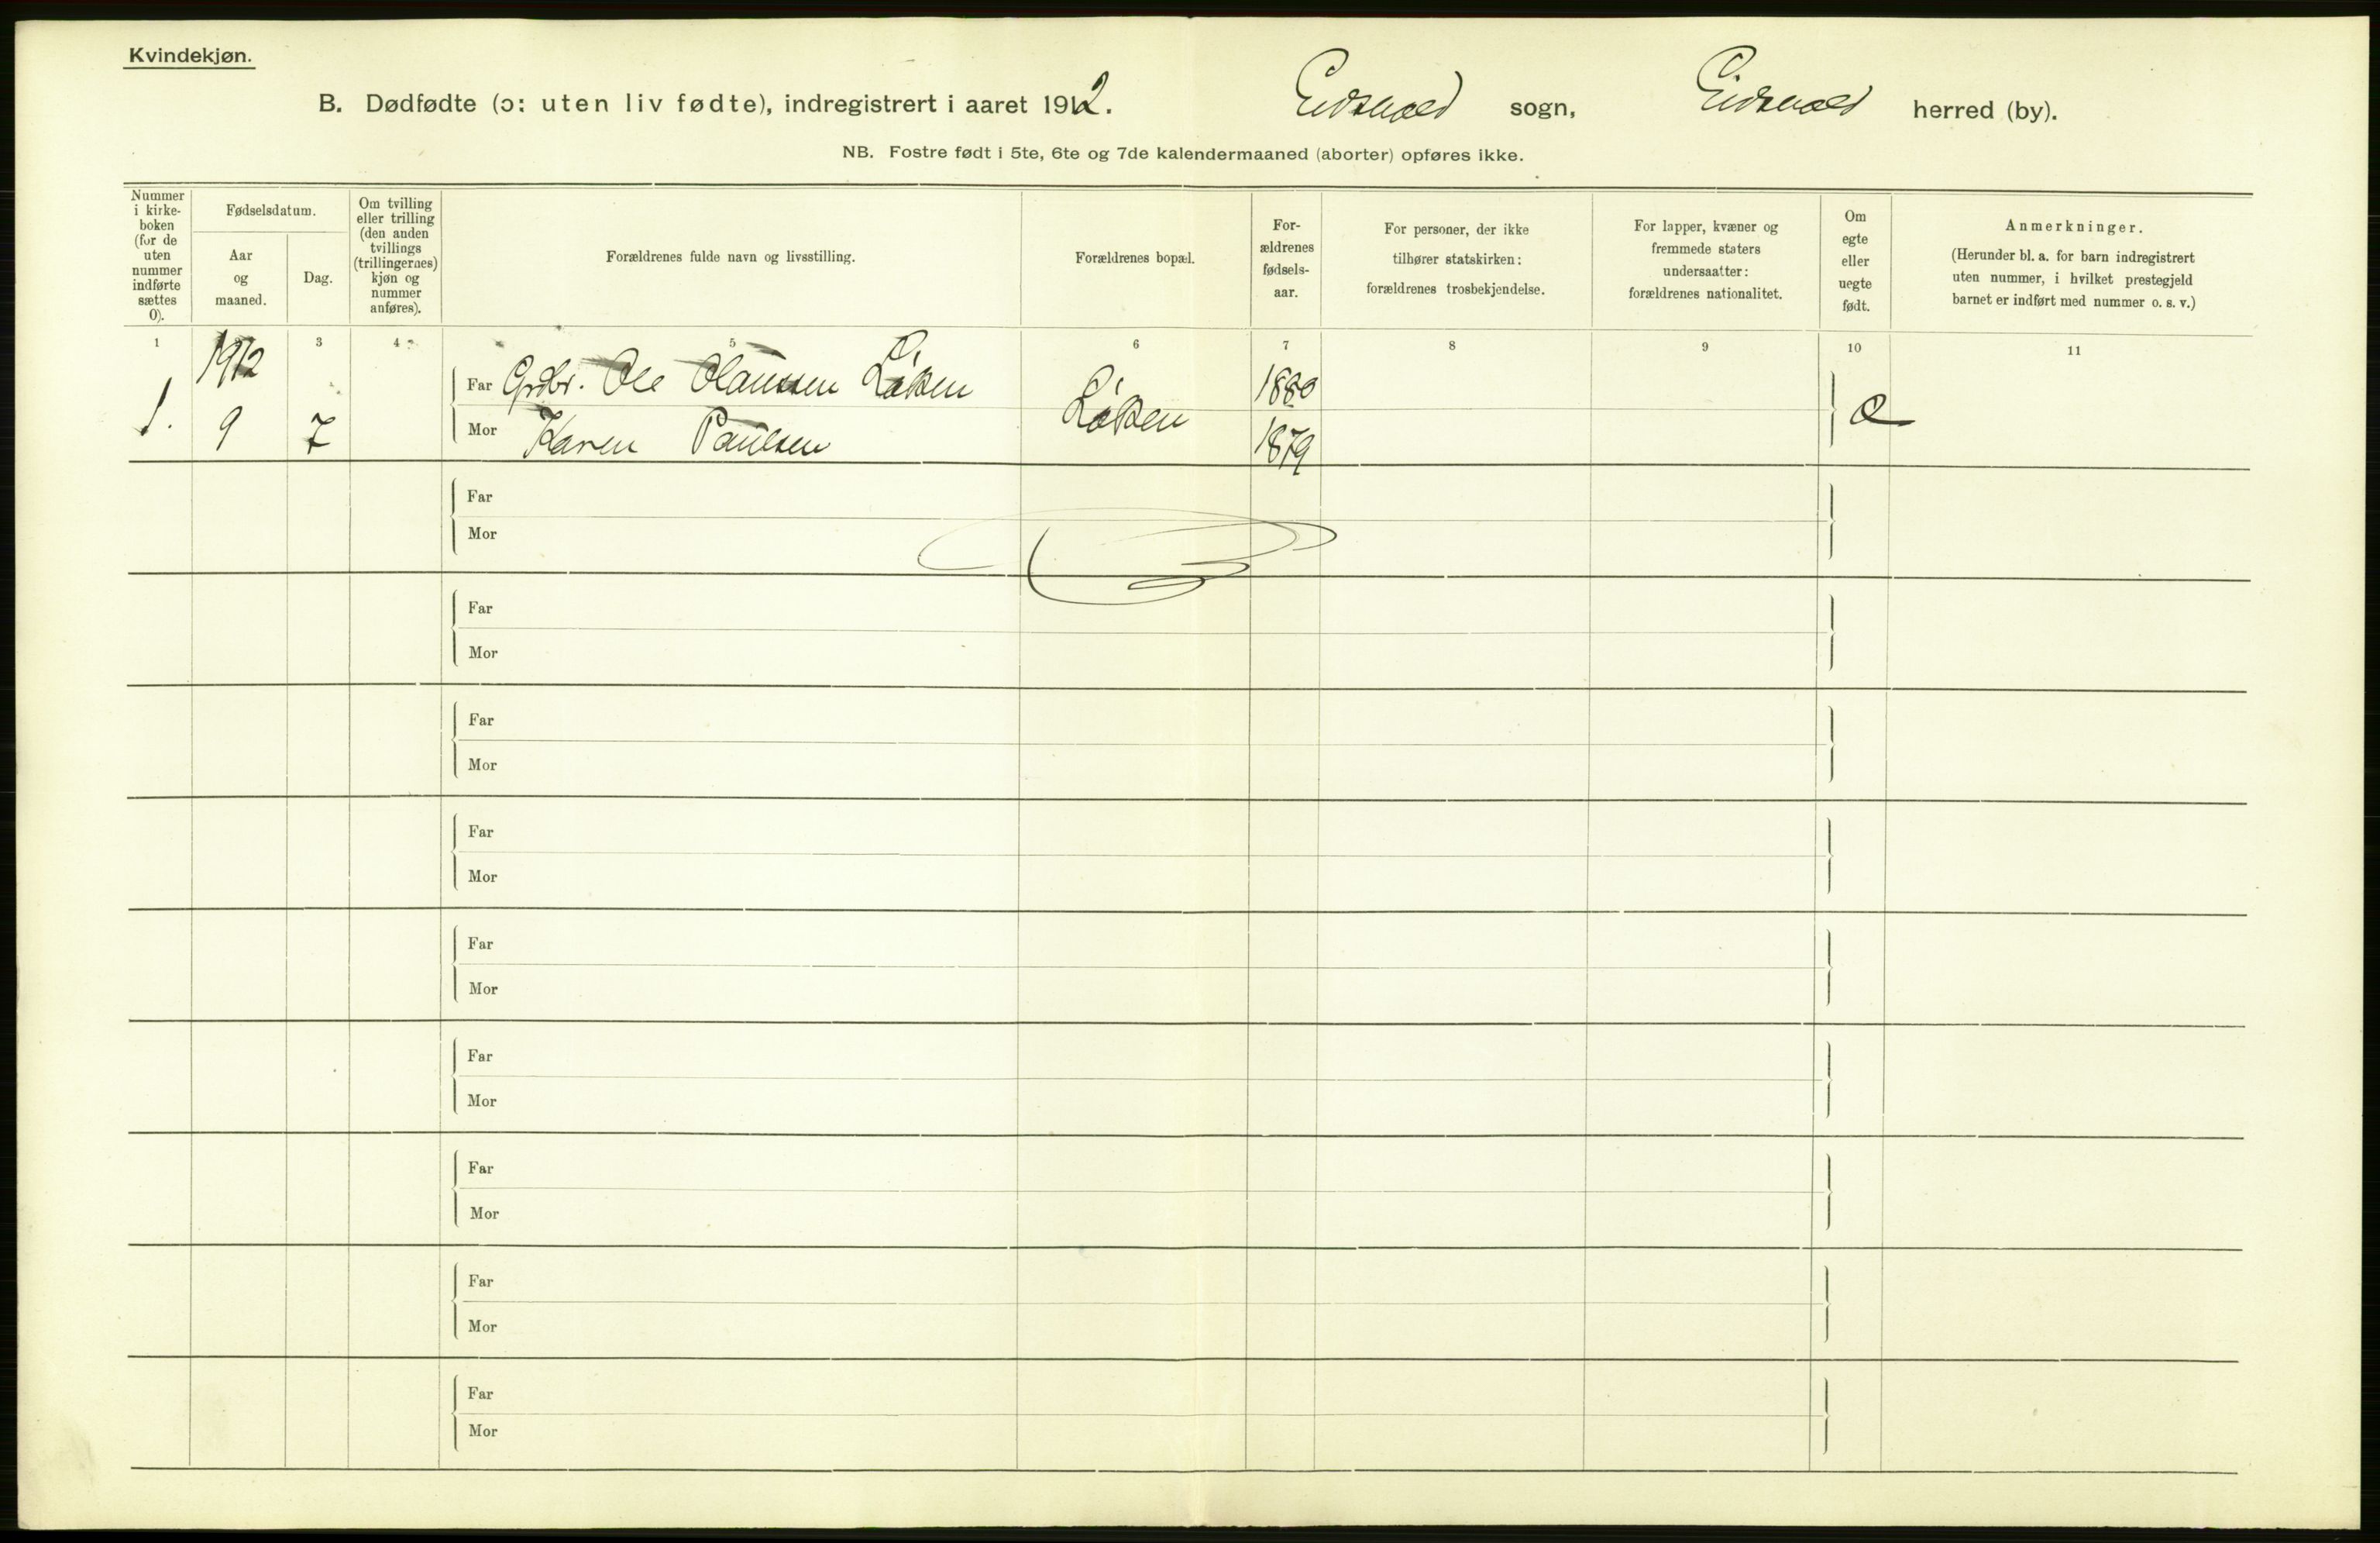 Kvindekjøn.
B. Dødfødte (ɔ: uten liv fødte), indregistrert i aaret 1912. Eidsvold sogn, Eidsvold herred (by).
NB. Fostre født i 5te, 6te og 7de kalendermaaned (aborter) opføres ikke.
Nummer i kirke-boken (for de uten nummer indførte sættes 0).
Fødselsdatum.
Aar og maaned.
Dag.
Om tvilling eller trilling (den anden tvillings (trillingernes) kjøn og nummer anføres).
Forældrenes fulde navn og livsstilling.
Forældrenes bopæl.
For-ældrenes fødsels-aar.
For personer, der ikke tilhører statskirken: forældrenes trosbekjendelse.
For lapper, kvæner og fremmede staters undersaatter: forældrenes nationalitet.
Om egte eller uegte født.
Anmerkninger.
(Herunder bl. a. for barn indregistrert uten nummer, i hvilket prestegjeld barnet er indført med nummer o. s. v.)
1 3 4 5 6 7 8 9 10 11
1912
Far Grdbr. Ole Olaussen Løken 1880
1. 9 7 Løken e
Mor Karen Paulsen 1879
Far
Mor
Far
Mor
Far
Mor
Far
Mor
Far
Mor
Far
Mor
Far
Mor
Far
Mor
Far
Mor